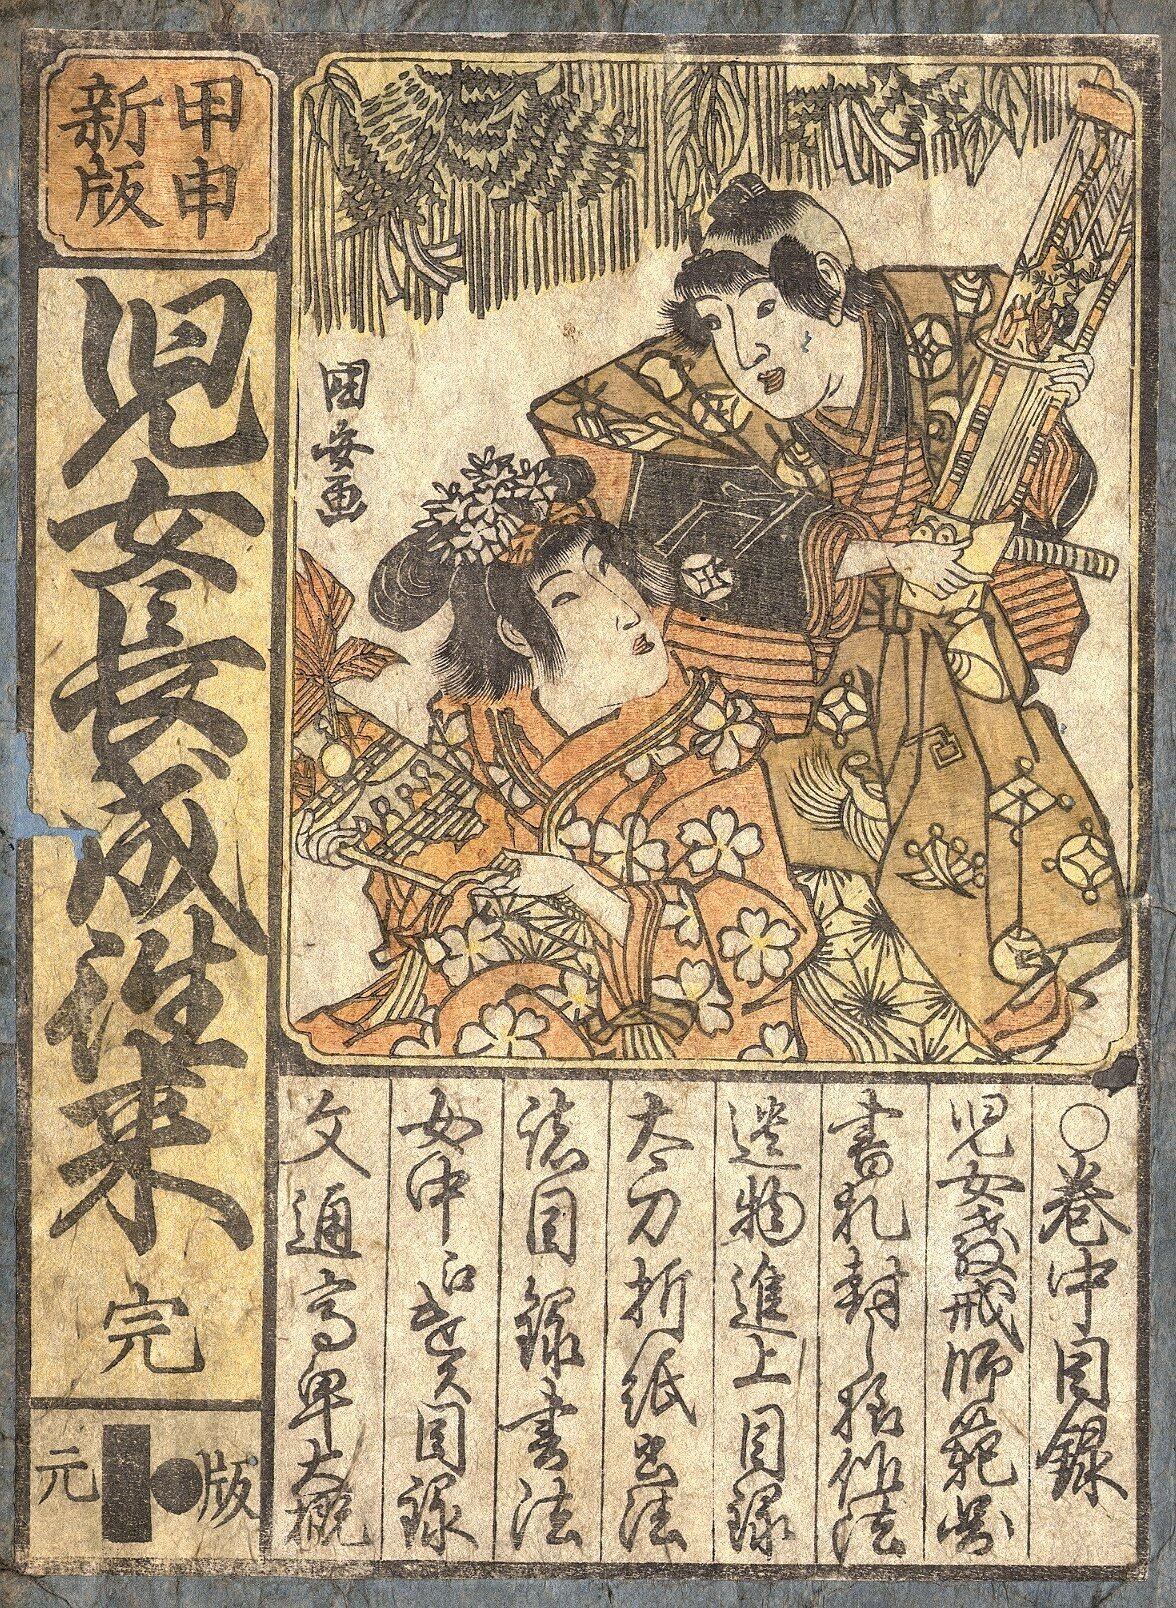 甲申
新版
児女長成往来
完
元
版
国安画
〇巻中目録
児女教戒師範図
書札封じ様作法
遣物進上目録
太刀折紙書法
諸目録書法
女中
目録
文通高卑大概